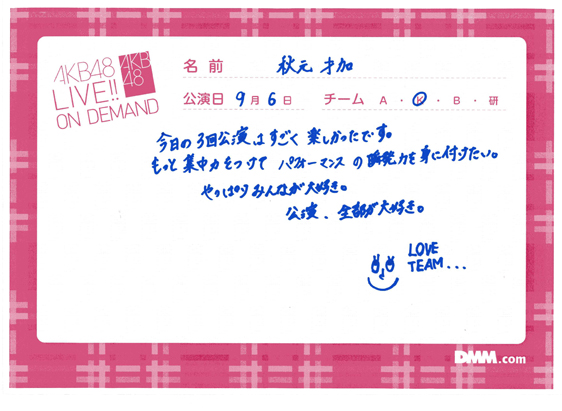 AKB48
LIVE!!
ON DEMAND
AKB
48
名前 秋元 才加
公演日 9月6日 チーム A・K・B・研
今日の3回公演はすごく楽しかったです。
もっと集中力をつけてパフォーマンスの瞬発力を身に付けたい。
やっぱりみんなが大好き。
公演、全部が大好き。
LOVE
TEAM...
DMM.com